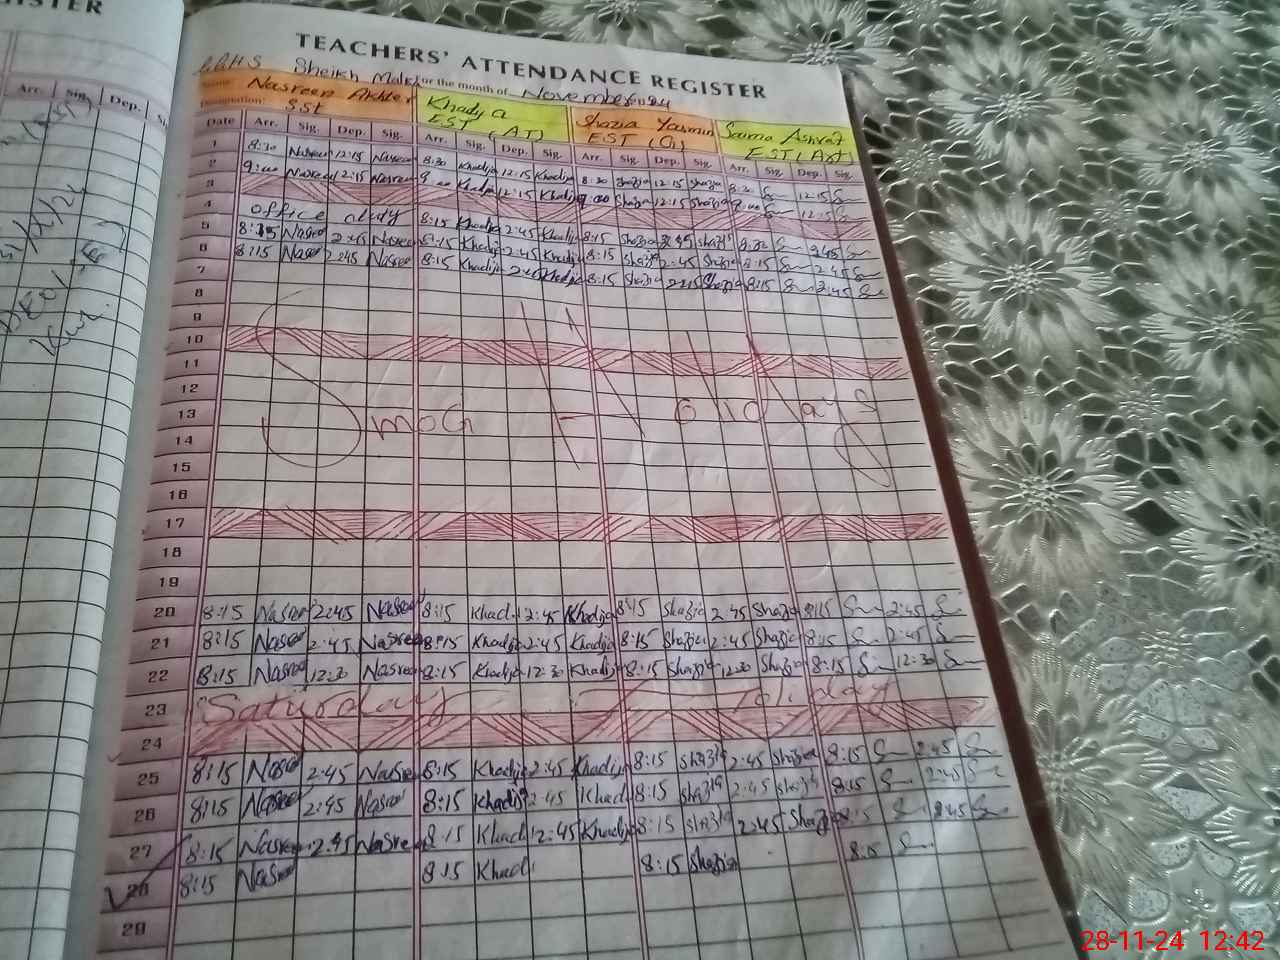 ISTER
TEACHERS' ATTENDANCE REGISTER
Sheikh for the month of November 24
Nasreen Akhter Khadija Shazia Yasmin Saima Ashraf
Designation: SST EST (AT) EST EST (Art)
Arr. Sig. Dep.
Date Arr. Sig. Dep. Sig. Arr. Sig. Dep. Sig. Arr. Sig. Dep. Sig. Arr. Sig. Dep. Sig.
1 8:30 Nasreen 12:15 Nasreen 8:30 Khadija 12:15 Khadija 8:30 Shazia 12:15 Shazia 8:30 12:15
2 9:00 Nasreen 12:15 Nasreen 9:00 Khadija 12:15 Khadija 9:00 Shazia 12:15 Shazia 9:00 12:15
3
4 office duty 8:15 Khadija 2:45 Khadija 8:15 Shazia 2:45 Shazia 8:30 2:45
5 8:15 Nasreen 2:45 Nasreen 8:15 Khadija 2:45 Khadija 8:15 Shazia 2:45 Shazia 8:15 2:45
6 8:15 Nasreen 2:45 Nasreen 8:15 Khadija 2:45 Khadija 8:15 Shazia 2:45 Shazia 8:15 2:45
7
8
9
10
11
12
13 SmoG Holidays
14
15
16
17
18
19
20 8:15 Nasreen 2:45 Nasreen 8:15 Khadija 2:45 Khadija 8:15 Shazia 2:45 Shazia 8:15 2:45
21 8:15 Nasreen 2:45 Nasreen 8:15 Khadija 2:45 Khadija 8:15 Shazia 2:45 Shazia 8:15 2:45
22 8:15 Nasreen 12:30 Nasreen 8:15 Khadija 12:30 Khadija 8:15 Shazia 12:30 Shazia 8:15 12:30
23 Saturday Holiday
24
25 8:15 Nasreen 2:45 Nasreen 8:15 Khadija 2:45 Khadija 8:15 Shazia 2:45 Shazia 8:15 2:45
26 8:15 Nasreen 2:45 Nasreen 8:15 Khadija 2:45 Khad 8:15 Shazia 2:45 Shazia 8:15 2:45
27 8:15 Nasreen 2:45 Nasreen 8:15 Khadija 2:45 Khadija 8:15 Shazia 2:45 Shazia 8:15 2:45
28 8:15 Nasreen 8:15 Khadi 8:15 Shazia 8:15
29
28-11-24 12:42